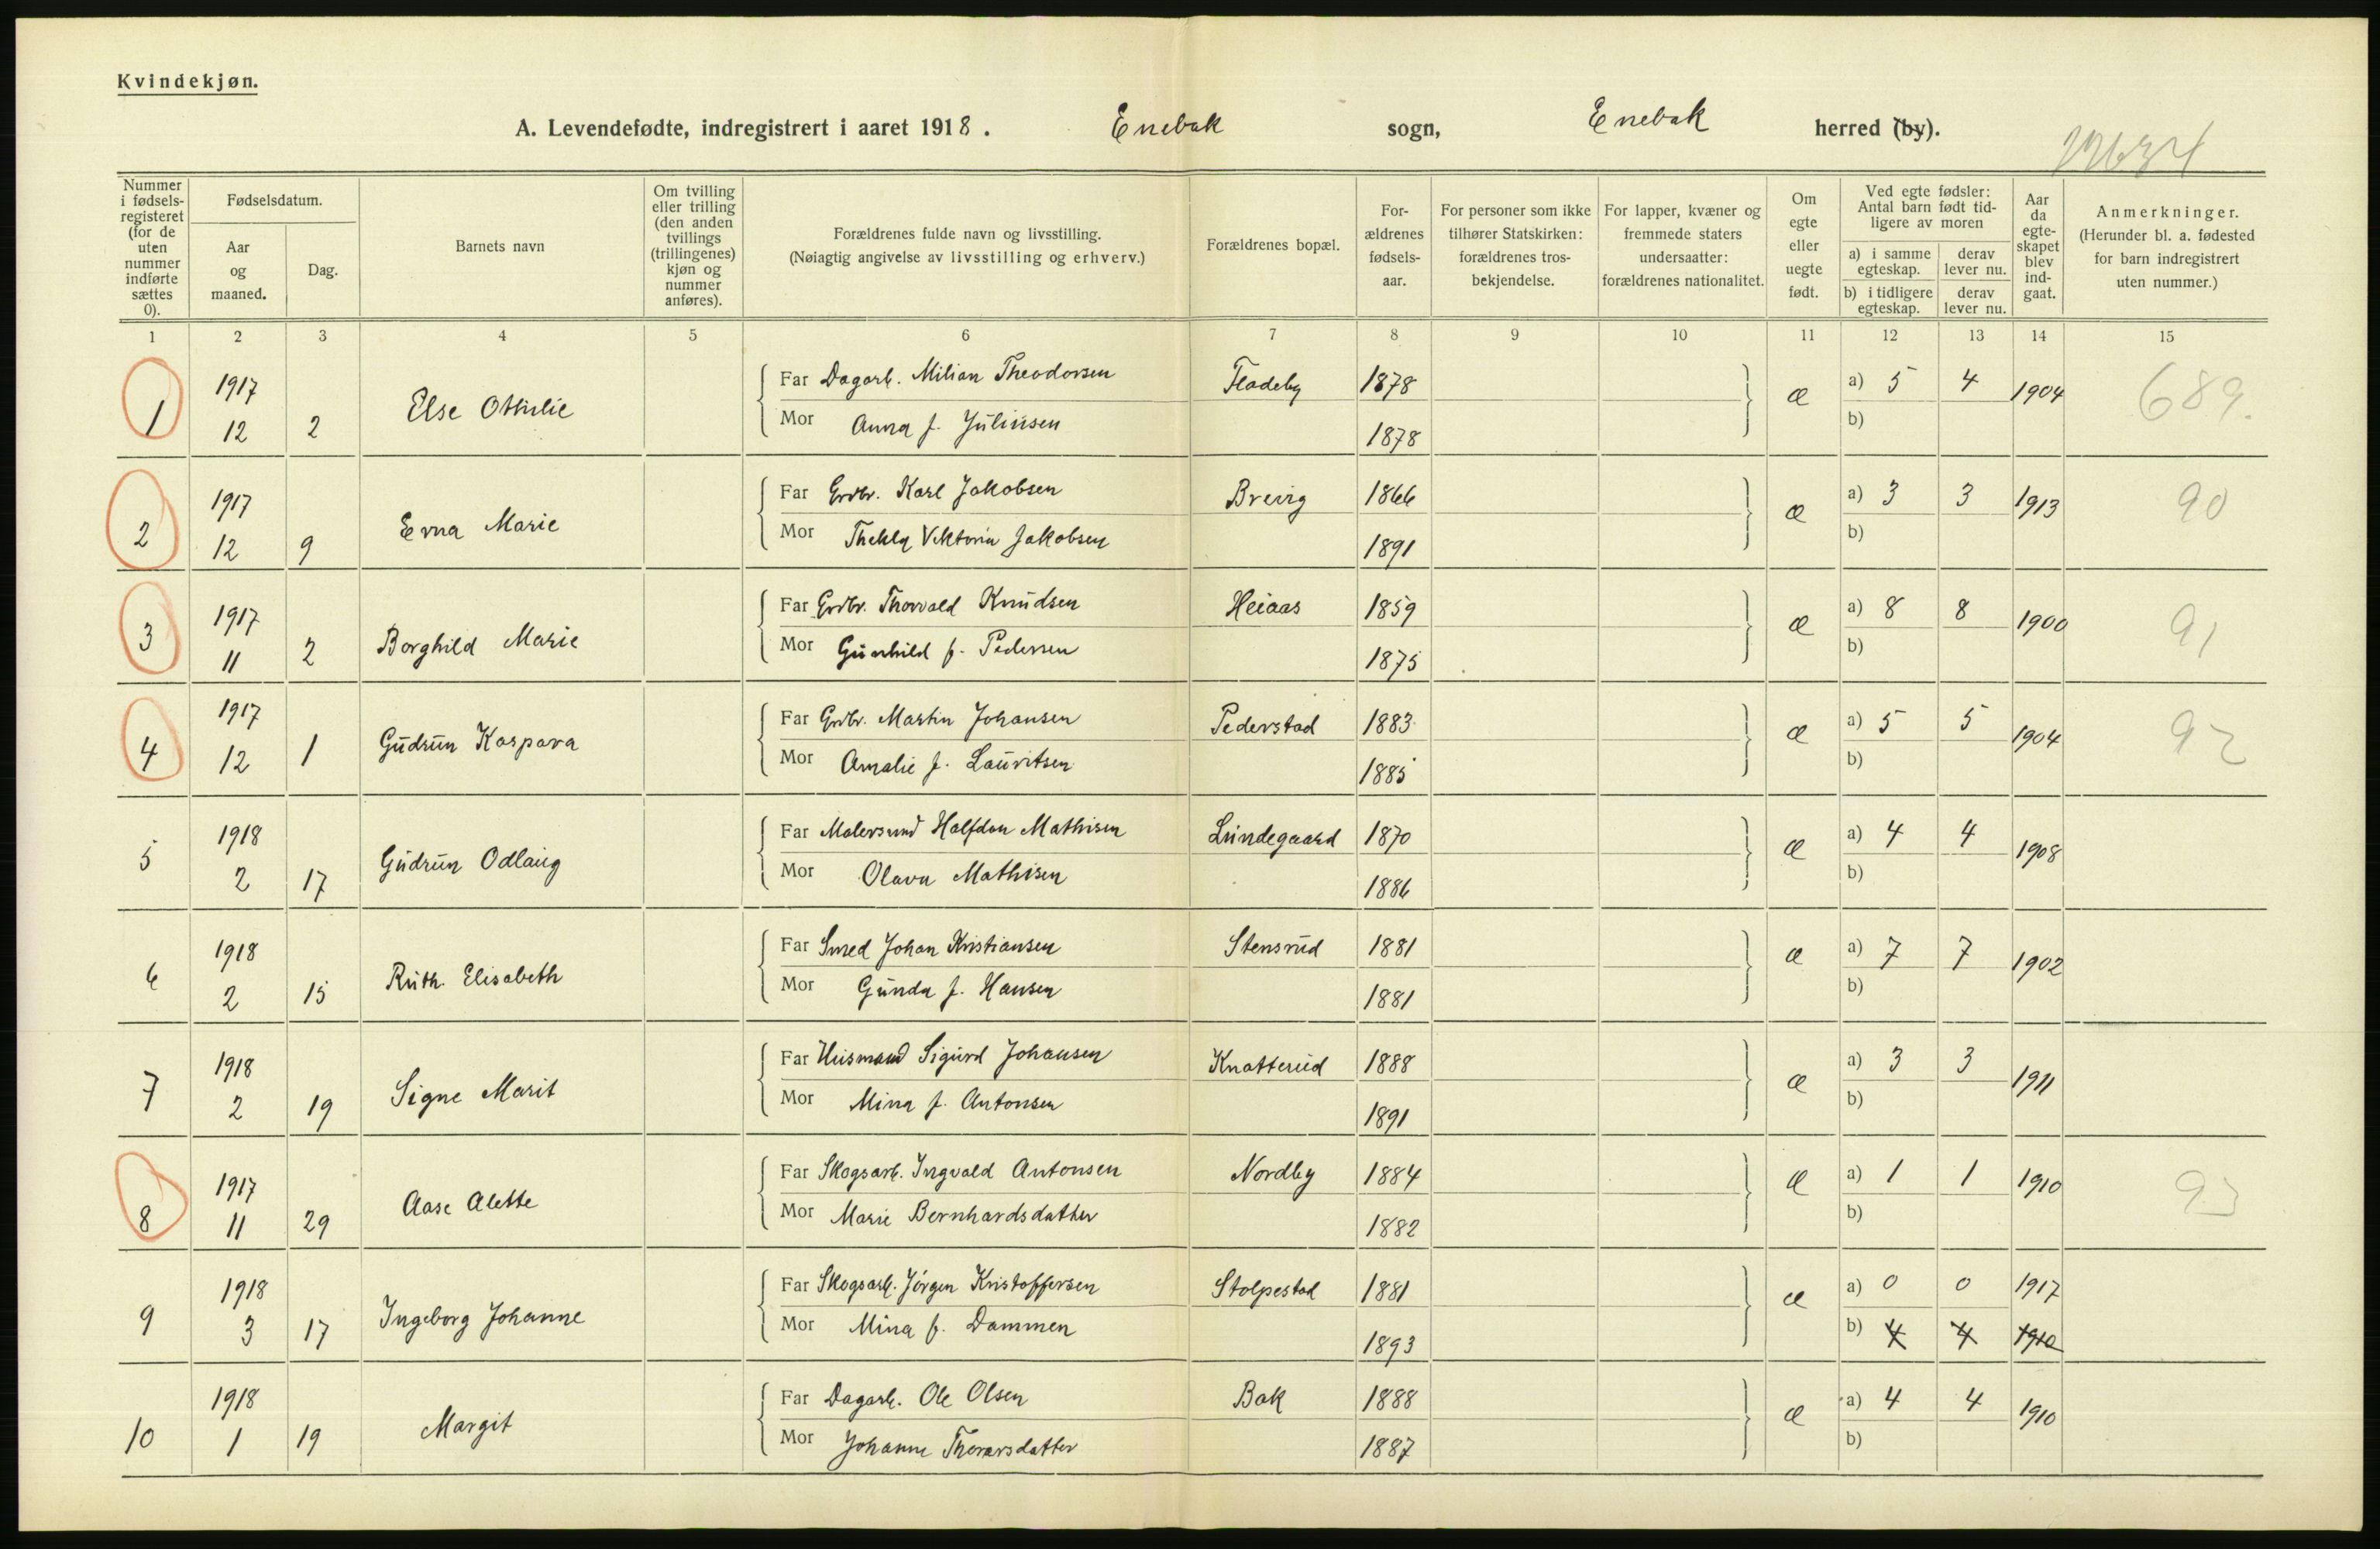 Kvindekjøn.
A. Levendefødte, indregistrert i aaret 1918. Enebak sogn, Enebak herred (by).
Nummer i fødsels-registeret (for de uten nummer indførte sættes 0).
Fødselsdatum.
Aar og maaned.
Dag.
Barnets navn
Om tvilling eller trilling (den anden tvillings (trillingenes) kjøn og nummer anføres).
Forældrenes fulde navn og livsstilling.
(Nøiagtig angivelse av livsstilling og erhverv.)
Forældrenes bopæl.
For-ældrenes fødsels-aar.
For personer som ikke tilhører Statskirken: forældrenes tros-bekjendelse.
For lapper, kvæner og fremmede staters undersaatter: forældrenes nationalitet.
Om egte eller uegte født.
Ved egte fødsler: Antal barn født tid-ligere av moren
a) i samme egteskap.
derav lever nu.
b) i tidligere egteskap.
derav lever nu.
Aar da egte-skapet blev ind-gaat.
Anmerkninger.
(Herunder bl. a. fødested for barn indregistrert uten nummer.)
1 2 3 4 5 6 7 8 9 10 11 12 13 14 15
1 1917 12 2 Else Othilie Far Dagarb. Milian Theodorsen Fladeby 1878 æ a) 5 4 1904 689.
Mor Anna f. Juliusen 1878 b)
2 1917 12 9 Erna Marie Far Grdbr. Karl Jakobsen Brevig 1866 æ a) 3 3 1913 90
Mor Thekla Viktoria Jakobsen 1891 b)
3 1917 11 2 Borghild Marie Far Grdbr. Thorvald Knudsen Heiaas 1859 æ a) 8 8 1900 91
Mor Gunhild f. Pedersen 1875 b)
4 1917 12 1 Gudrun Kaspara Far Grdbr. Martin Johansen Pederstad 1883 æ a) 5 5 1904 92
Mor Amalie f. Lauritsen 1885 b)
5 1918 2 17 Gudrun Odlaug Far Malersvend Halfdan Mathisen Lundegaard 1870 æ a) 4 4 1908
Mor Olava Mathisen 1886 b)
6 1918 2 15 Ruth Elisabeth Far Smed Johan Kristiansen Stensrud 1881 æ a) 7 7 1902
Mor Gunda f. Hansen 1881 b)
7 1918 2 19 Signe Marit Far Husmand Sigurd Johansen Knatterud 1888 æ a) 3 3 1911
Mor Mina f. Antonsen 1891 b)
8 1917 11 29 Aase Alette Far Skogsarb. Ingvald Antonsen Nordby 1884 æ a) 1 1 1910 93
Mor Marie Bernhardsdatter 1882 b)
9 1918 3 17 Ingeborg Johanne Far Skogsarb. Jörgen Kristoffersen Stolpestad 1881 æ a) 0 0 1917
Mor Mina f. Dammen 1893 b) 4 4 1910
10 1918 1 19 Margit Far Dagarb. Ole Olsen Bak 1888 æ a) 4 4 1910
Mor Johanne Thorarsdatter 1887 b)